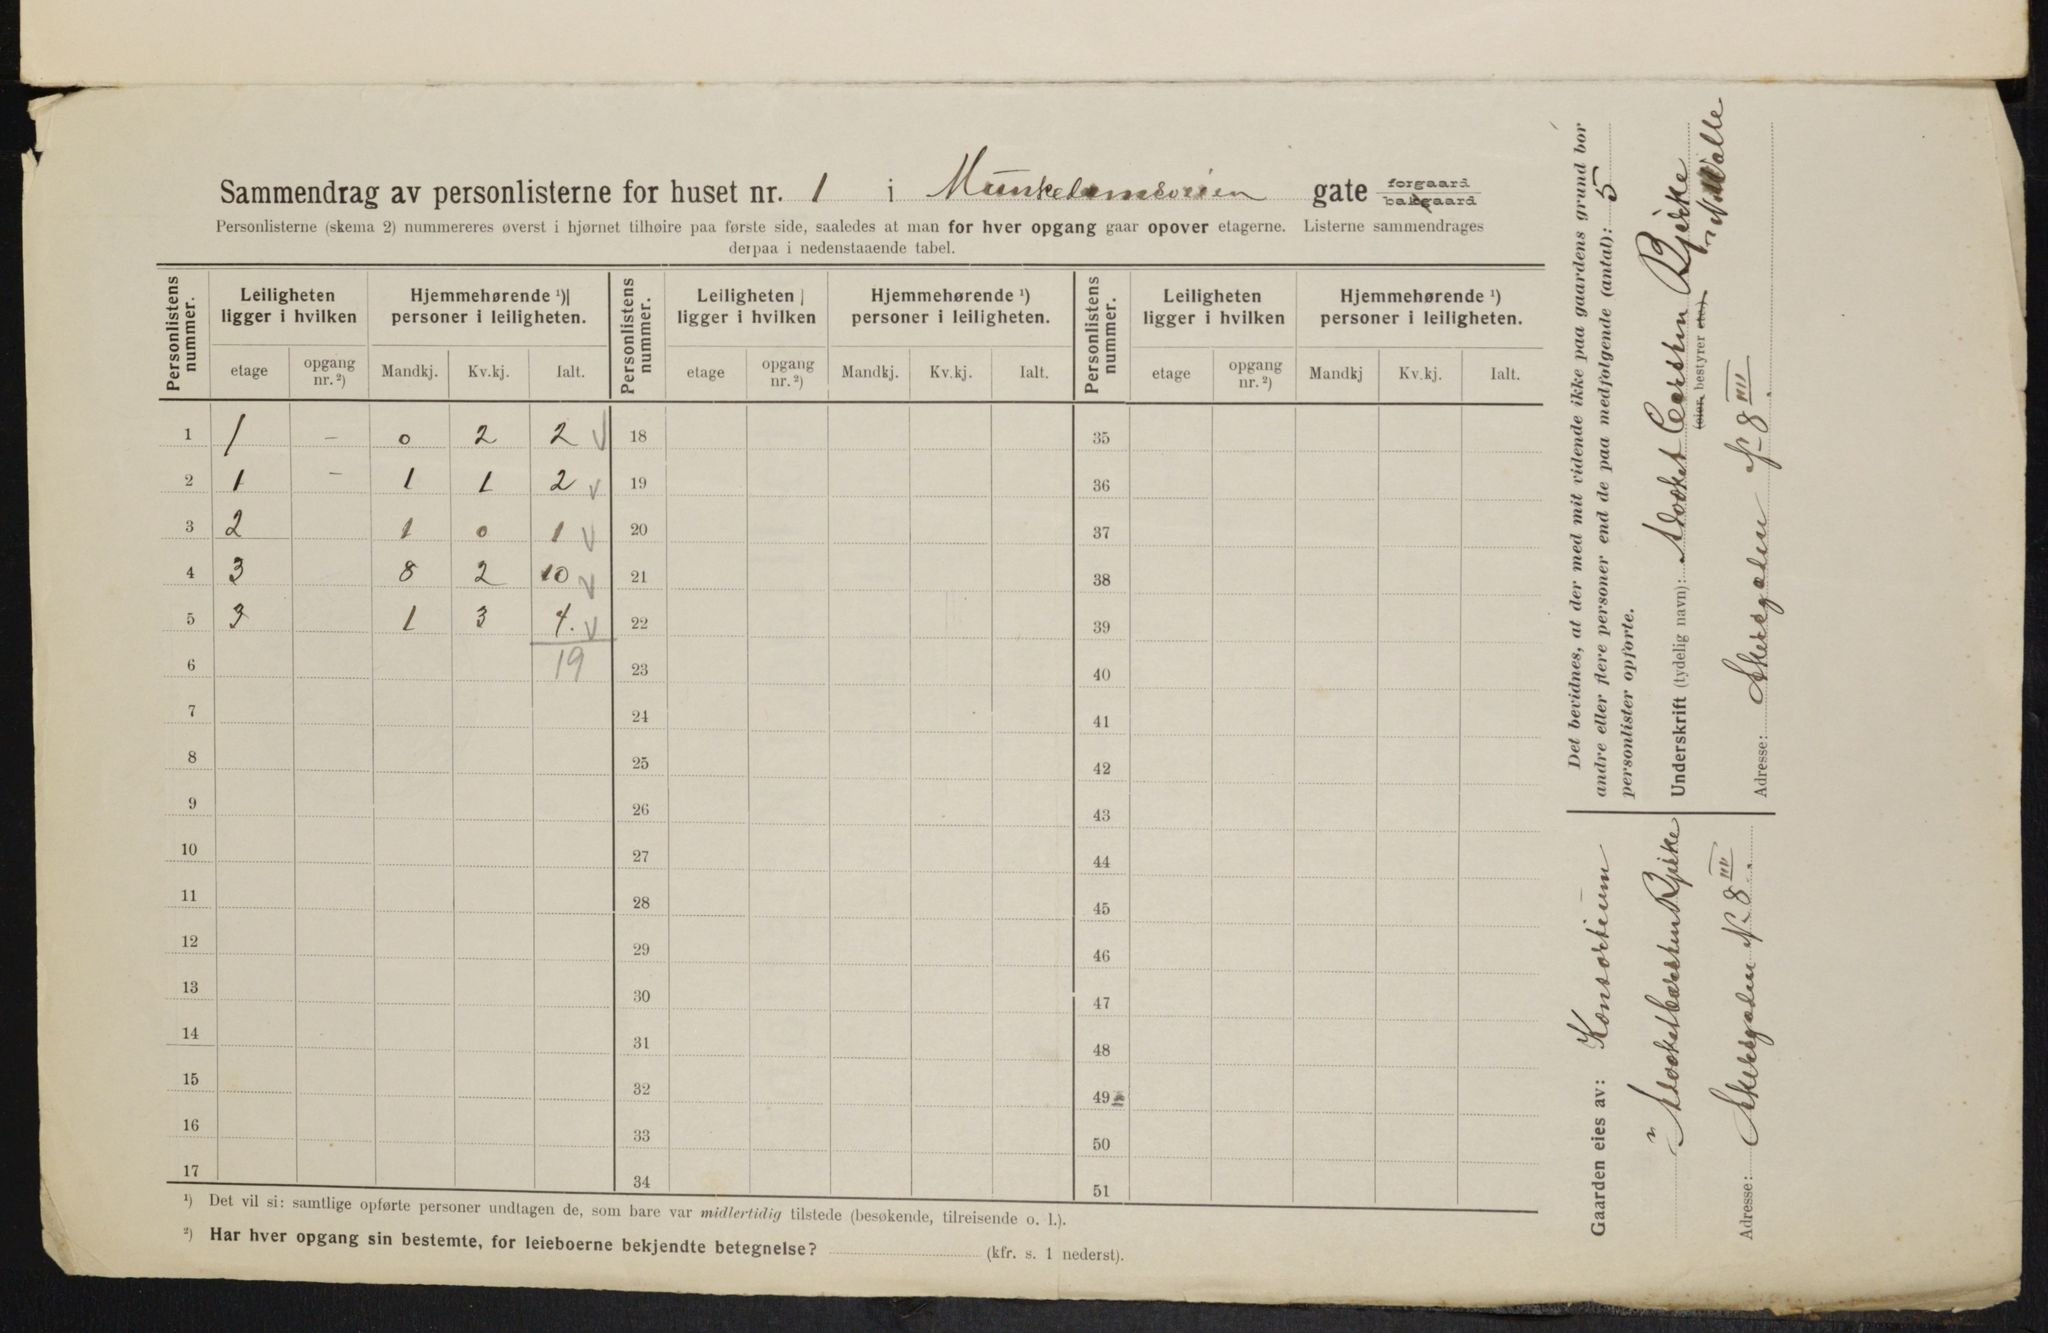 Sammendrag av personlisterne for huset nr. 1 i Munkedamsveien gate forgaard bakgaard
Personlisterne (skema 2) nummereres øverst i hjørnet tilhøire paa første side, saaledes at man for hver opgang gaar opover etagerne. Listerne sammendrages
derpaa i nedenstaaende tabel.
Personlistens nummer. Leiligheten ligger i hvilken Hjemmehørende ¹) personer i leiligheten. Personlistens nummer. Leiligheten ligger i hvilken Hjemmehørende ¹) personer i leiligheten. Personlistens nummer. Leiligheten ligger i hvilken Hjemmehørende ¹) personer i leiligheten.
etage opgang nr. ²) Mandkj. Kv.kj. Ialt. etage opgang nr. ²) Mandkj. Kv.kj. Ialt. etage opgang nr. ²) Mandkj Kv.kj. Ialt.
1 1 – 0 2 2 18 35
2 1 – 1 1 2 19 36
3 2 1 0 1 20 37
4 3 8 2 10 21 38
5 3 1 3 4. 22 39
6 19 23 40
7 24 41
8 25 42
9 26 43
10 27 44
11 28 45
12 29 46
13 30 47
14 31 48
15 32 49
16 33 50
17 34 51
¹) Det vil si: samtlige opførte personer undtagen de, som bare var midlertidig tilstede (besøkende, tilreisende o. l.).
²) Har hver opgang sin bestemte, for leieboerne bekjendte betegnelse? (kfr. s. 1 nederst).
Det bevidnes, at der med mit vidende ikke paa gaardens grund bor
andre eller flere personer end de paa medfølgende (antal): 5
personlister opførte.
Underskrift (tydelig navn): Advokat Carsten Bjerke
(eier, bestyrer etc.)
Adresse: Akersgaten No 8 III
Gaarden eies av: Konsortium
Advokat Carsten Bjerke
Adresse: Akersgaten No 8 III.